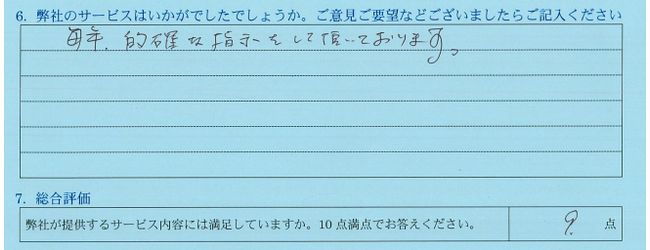 6. 弊社のサービスはいかがでしたでしょうか。ご意見ご要望などございましたらご記入ください
毎年、的確な指示をして頂いております。
7. 総合評価
弊社が提供するサービス内容には満足していますか。10点満点でお答えください。 9. 点